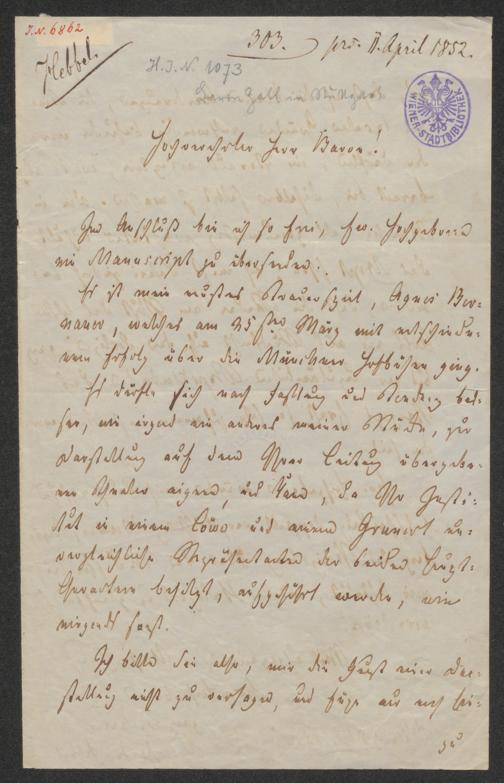 I.N. 6862
Hebbel.
303. prs. 11. April 1852.
H.I.N. 1073
Baron Gall in Stuttgart
WIENER-STADTBIBLIOTHEK
Hochverehrter Herr Baron!
Im Anschluß bin ich so frei, Ew. Hochgeboren
ein Manuscript zu übersenden.
Es ist mein neustes Trauerspiel, Agnes Ber-
nauer, welches am 25sten März mit entschiede-
nem Erfolg über die Münchner Hofbühne ging.
Es dürfte sich nach Fassung und Tendenz bes-
ser, wie irgend ein anderes meiner Stücke, zur
Darstellung auf dem Ihrer Leitung übergebe-
nen Theater eignen, und kann, da Ihr Insti-
tut in einem Löwe und einem Grunert un-
vergleichliche Repräsentanten der beiden Haupt-
Charactere besitzt, aufgeführt werden, wie
nirgends sonst.
Ich bitte Sie also, mir die Gunst einer Dar-
stellung nicht zu versagen, und füge nur noch hin-
zu